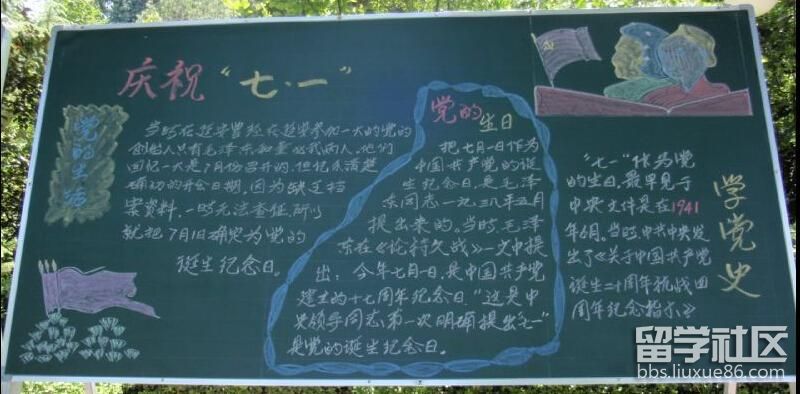 庆祝“七·一”
党的生活
当时在延安曾经在延安参加一大的党的
创始人只有毛泽东和董必武两人。他们
回忆一大是7月份召开的,但记不清楚
确切的开会日期,因为缺乏档
案资料,一时无法查证,所以
就把7月1日确定为党的
诞生纪念日。
党的生日
把七月一日作为
中国共产党的诞
生纪念日,是毛泽
东同志一九三八年五月
提出来的。当时,毛泽
东在《论持久战》一文中提
出:今年七月一日,是中国共产党
建立的十七周年纪念日”这是中
央领导同志第一次明确提出“七一”
是党的诞生纪念日。
“七一”作为党
的生日,最早见于
中央文件是在1941
年6月。当时,中共中央发
出了《关于中国共产党
诞生二十周年抗战四
周年纪念指示》
学党史
留学社区
bbs.liuxue86.com